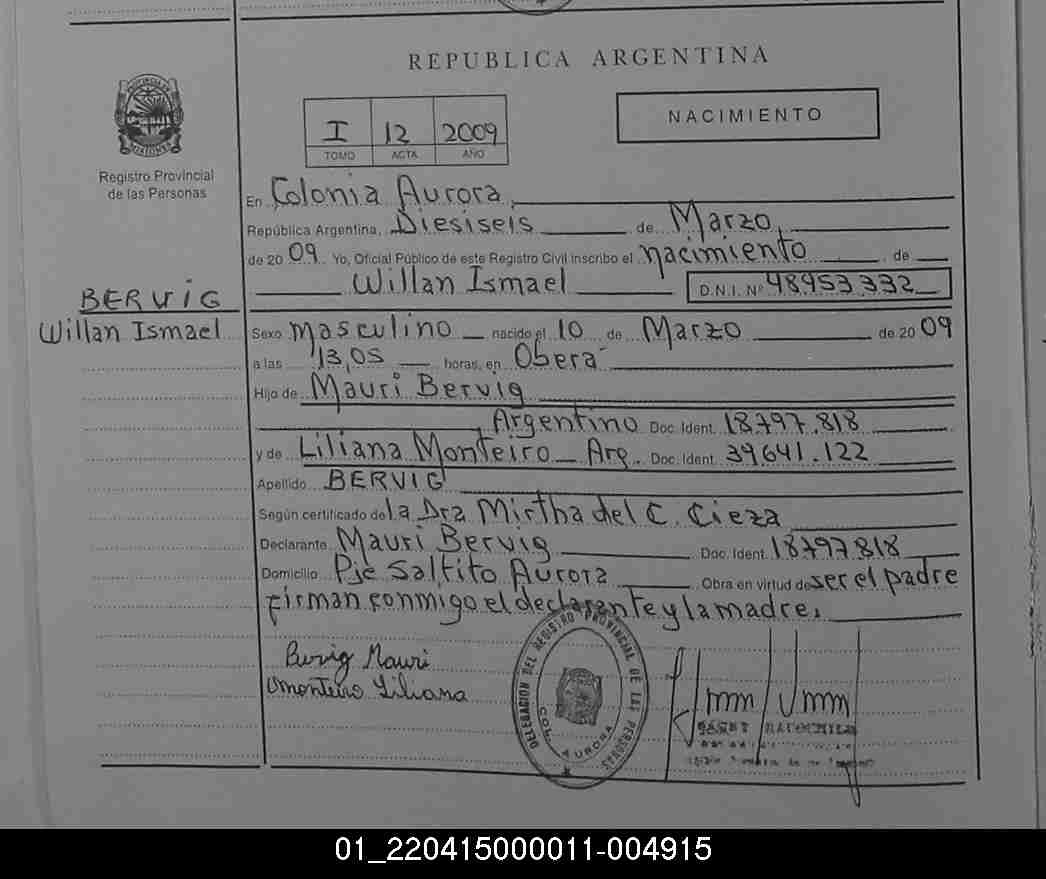 REPUBLICA ARGENTINA
PROVINCIA DE MISIONES
Registro Provincial
de las Personas
I 12 2009
TOMO ACTA AÑO
NACIMIENTO
En Colonia Aurora,
República Argentina, Diesiseis de Marzo,
de 20 09 Yo, Oficial Público de este Registro Civil inscribo el nacimiento de
Willan Ismael D.N.I. Nº 48953332
BERVIG
Willan Ismael
Sexo masculino nacido el 10 de Marzo de 20 09
a las 13,05 horas, en Oberá
Hijo de Mauri Bervig
, Argentino Doc. Ident. 18797.818
y de Liliana Monteiro Arg. Doc. Ident. 39641.122
Apellido BERVIG
Según certificado de la Dra Mirtha del C. Cieza
Declarante Mauri Bervig Doc. Ident. 18797818
Domicilio Pje Saltito Aurora Obra en virtud de ser el padre
firman conmigo el declarante y la madre.
Bervig Mauri
Monteiro Liliana
DELEGACION DEL REGISTRO PROVINCIAL DE LAS PERSONAS
COL. AURORA
01_220415000011-004915